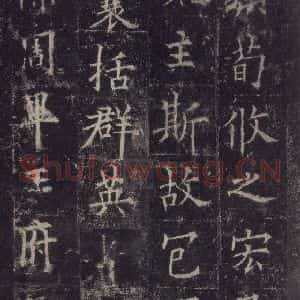 荀攸之宏
主斯故包
囊括群英
周畢王府
Shufawang.CN